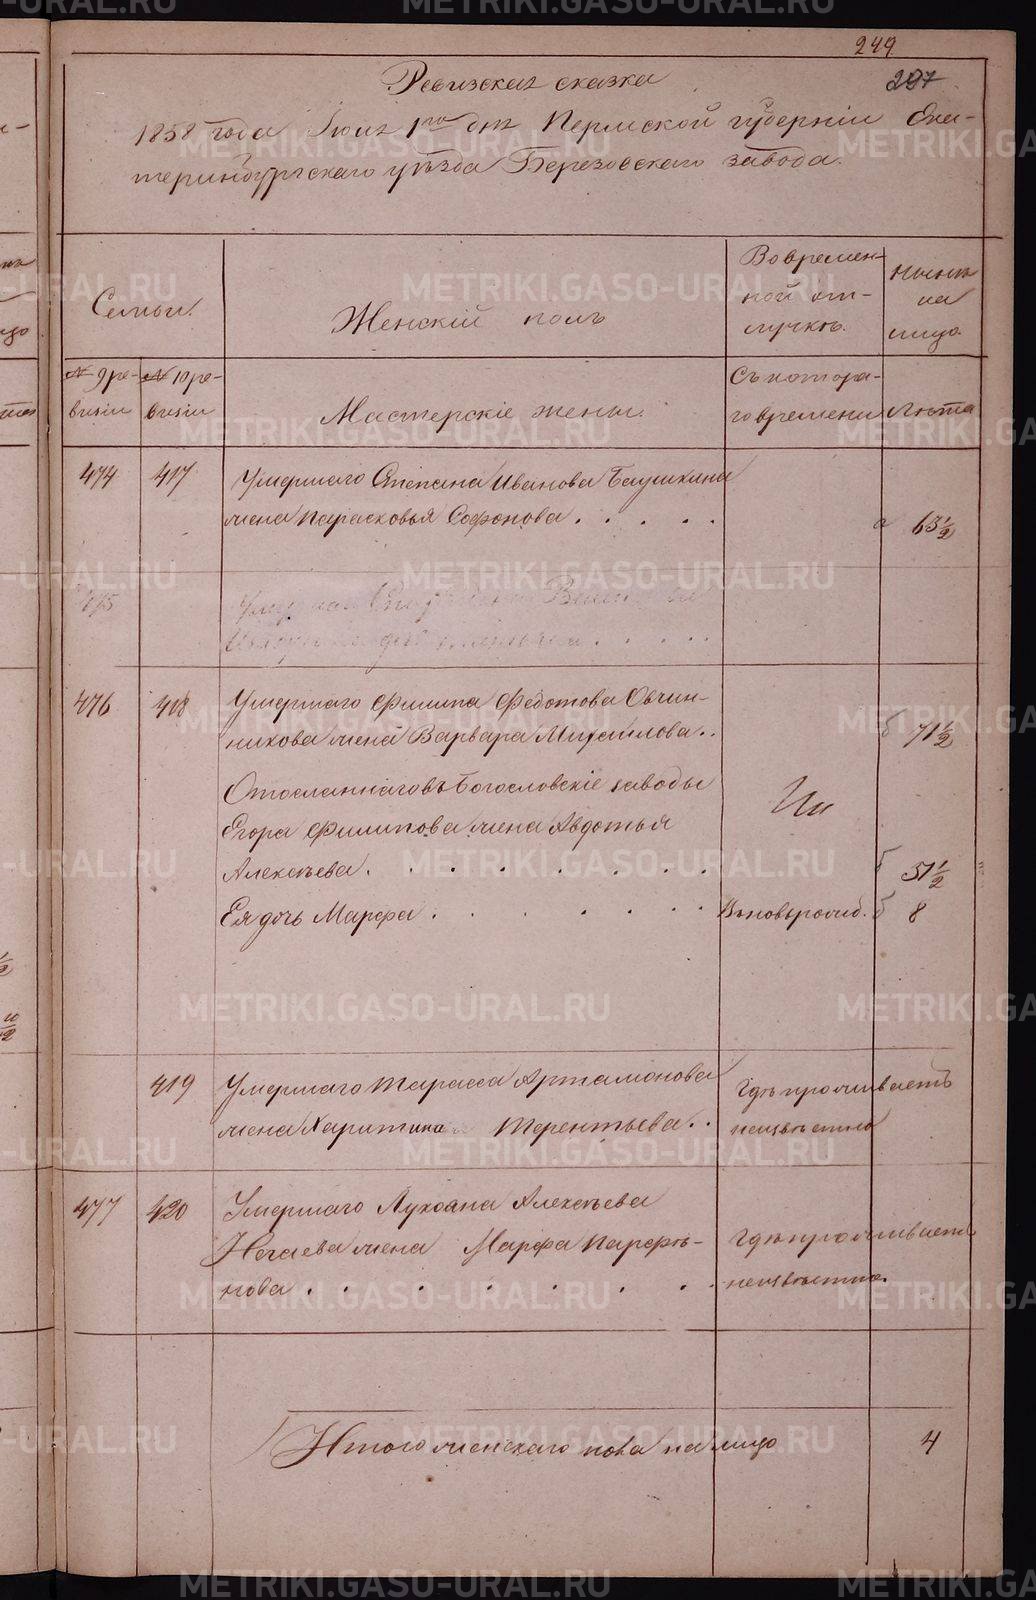 249
297
Ревизская сказка
1858 года Июля 1го дня Пермской губернiи Ека-
теринбургскаго уѣзда Березовскаго завода.
Семьи.
Женскiй полъ
Во времен-
ной от-
лучкѣ.
Нынѣ
на
лицо.
№ 9 ре-
визiи
№ 10 ре-
визiи
Мастерскiе жены.
Съ котора-
го времени
Лѣта
474 417 Умершаго Степана Иванова Баушкина
жена Парасковья Софонова . . . . . 63 ½
475 Умершаго
476 418 Умершаго Филипа Федотова Овчин-
никова жена Варвара Михайлова . . б 71 ½
Отосланнаго въ Богословскiе заводы
Егора Филипова жена Авдотья
Алексѣева . . . . . . . 51 ½
Ея дочь Марфа . . . . . . Вновьрожд. б 8
419 Умершаго Тарасса Артамонова Гдѣ проживаетъ
жена Харитина Терентьева . . неизвѣстно
477 420 Умершаго Лукоана Алексѣева
Ногаева жена Марфа Парфѣ- Гдѣ проживаетъ
нова . . . . . . . . неизвѣстно.
Итого женскаго пола на лицо 4
METRIKI.GASO-URAL.RU